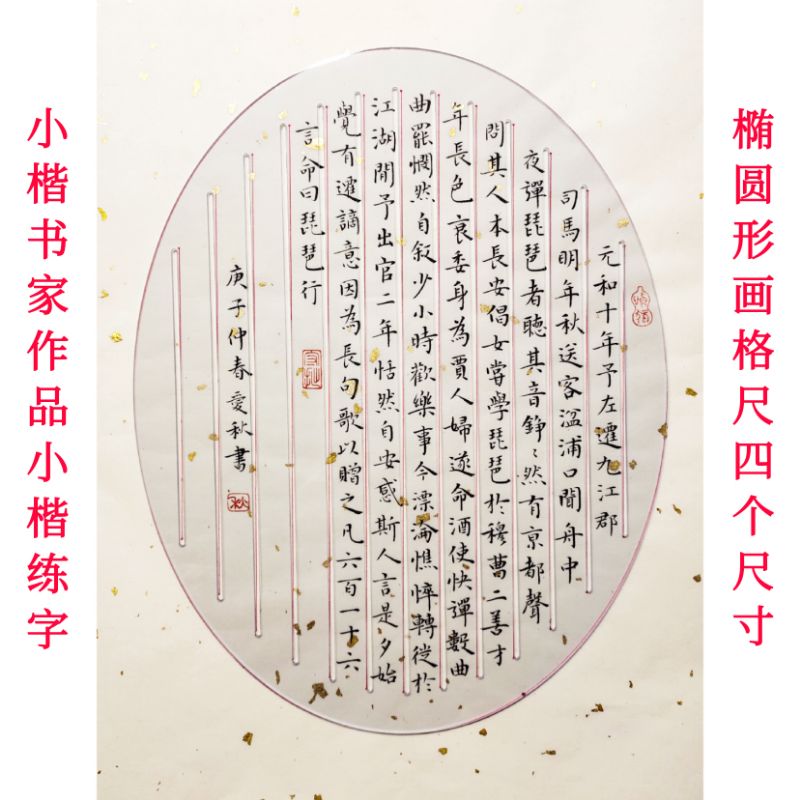 小楷书家作品小楷练字
椭圆形画格尺四个尺寸
元和十年予左遷九江郡
司馬明年秋送客湓浦口聞舟中
夜彈琵琶者聽其音錚〻然有京都聲
問其人本長安倡女嘗學琵琶於穆曹二善才
年長色衰委身為賈人婦遂命酒使快彈數曲
曲罷憫然自叙少小時歡樂事今漂淪憔悴轉徙於
江湖閒予出官二年恬然自安感斯人言是夕始
覺有遷謫意因為長句歌以贈之凡六百一十六
言命曰琵琶行
庚子仲春愛秋書
秋